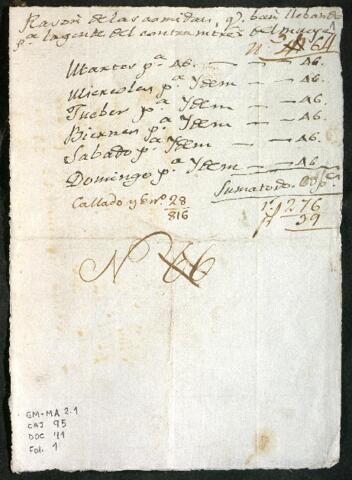 Razon de las comidas, q.e ban llebando
p.a la gente del contramtre del muey
Martes p.a 46. — — 46.
Miercoles p.a Ydem — — 46.
Juebes p.a Ydem — — 46.
Biernes p.a Ydem — — 46.
Sabado p.a Ydem — — 46.
Domingo p.a Ydem — — 46.
Suma todo
276
Callado y En.o 28
39
816
N 66
GM-MA 2.1
CAJ 95
DOC 41
Fol. 1